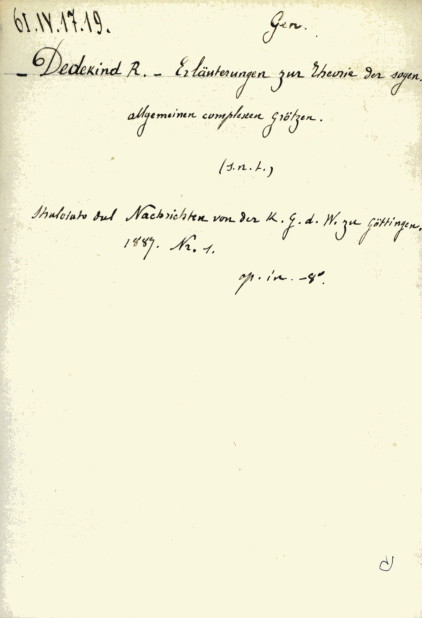 61.IV.17.19.
Gen.
- Dedekind R. - Erläuterungen zur Theorie der sogen.
allgemeinen complexen Grötzen.
(s.n.t.)
Stralciato dal Nachrichten von der K. G. d. W. zu Göttingen.
1887. Nr. 1.
op. in -8°.